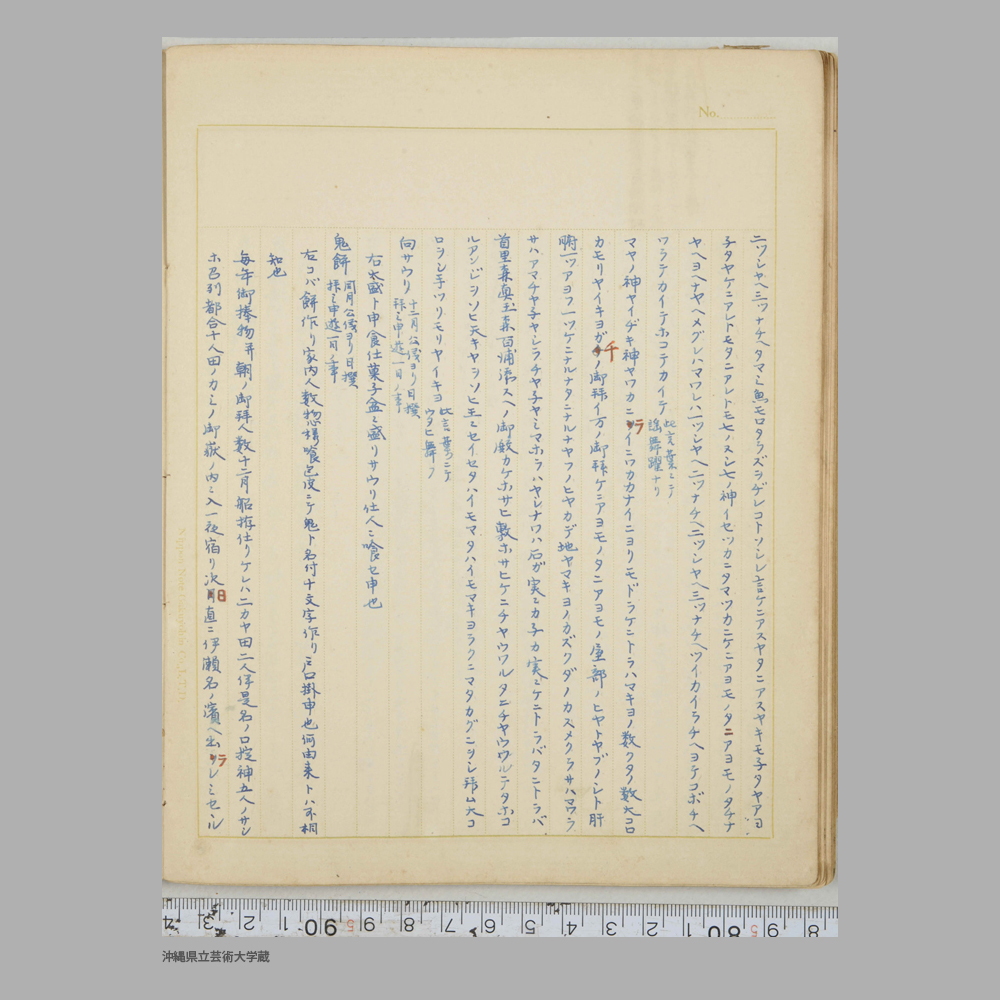 No.
ニツシヤヘ三ツナチヘタマミ魚モロタラズシヂレコトソシレ言ケニアスヤタニアスヤキモ子タヤアヨ
子タヤケニアレトモタニアレトモヒノヌシヒノ神イセツカニタマツカニケニアヨモノタニアヨモノタチナ
ヤヘヨヘナヤヘメグレハマワレハ一ツシヤヘ一ツナチヘ二ツシヤヘ三ツナチヘツイカイラチヘヨテコボチヘ
ワラテカイテホコテカイテ 此言葉ニテ
謡舞躍ナリ
マヤノ神ヤイヂキ神ヤワカニライニワカカナイニヨリモドラケニトラハマキヨノ数クタノ数大コロ
カモリヤイキヨガ千ノ御拝イ万ノ御拝ケニアヨモノタニアヨモノ屋部ノヒヤトヤブノシト肝
腑一ツアヨフ一ツケニナルナタニナルナヤフノヒヤカデ地ヤマキヨノカズクダノカスメクラサハマワラ
サハアマチヤ子ヤシラチヤ子ヤミマホラハヤレナワハ石ガ実ミカ子カ実ミケニトラバタニトラバ
首里森真玉森百浦添スヘノ御殿カケホサヒ敷ホサヒケニチヤウワルタニチヤウワルニテタホコ
ルアンジシソヒ天キヤシソヒ王ミセイセタハイモマタハイモマキヨラクニマタカグニシシ拝ム大コ
ロシシ手ツリモリヤイキヨ 此言葉ニテ
ウタヒ舞フ
向サウリ 十二月公儀ヨリ日撰
祢ミ申遊一日ノ事
右太盛ト申食仕菓子盆ニ盛リサウリ仕人ニ喰セ申也
鬼餅 同月公儀ヨリ日撰
祢ミ申遊一日ノ事
右コバ餅作リ家内人数惣様喰包皮ニテ鬼ト名付十文字作リ戸口掛申也何由来トハ不相
知也
毎年御捧物并朝ノ御拝人数十二月船拵仕リケレハ二カヤ田二人伊是名ノ口掟神五人ノサシ
ホ已列都合十人田ノカミノ御嶽ノ内ニ入一夜宿リ次日直ニ伊瀬名ノ濱ヘ出ラレミセル
沖縄県立芸術大学蔵